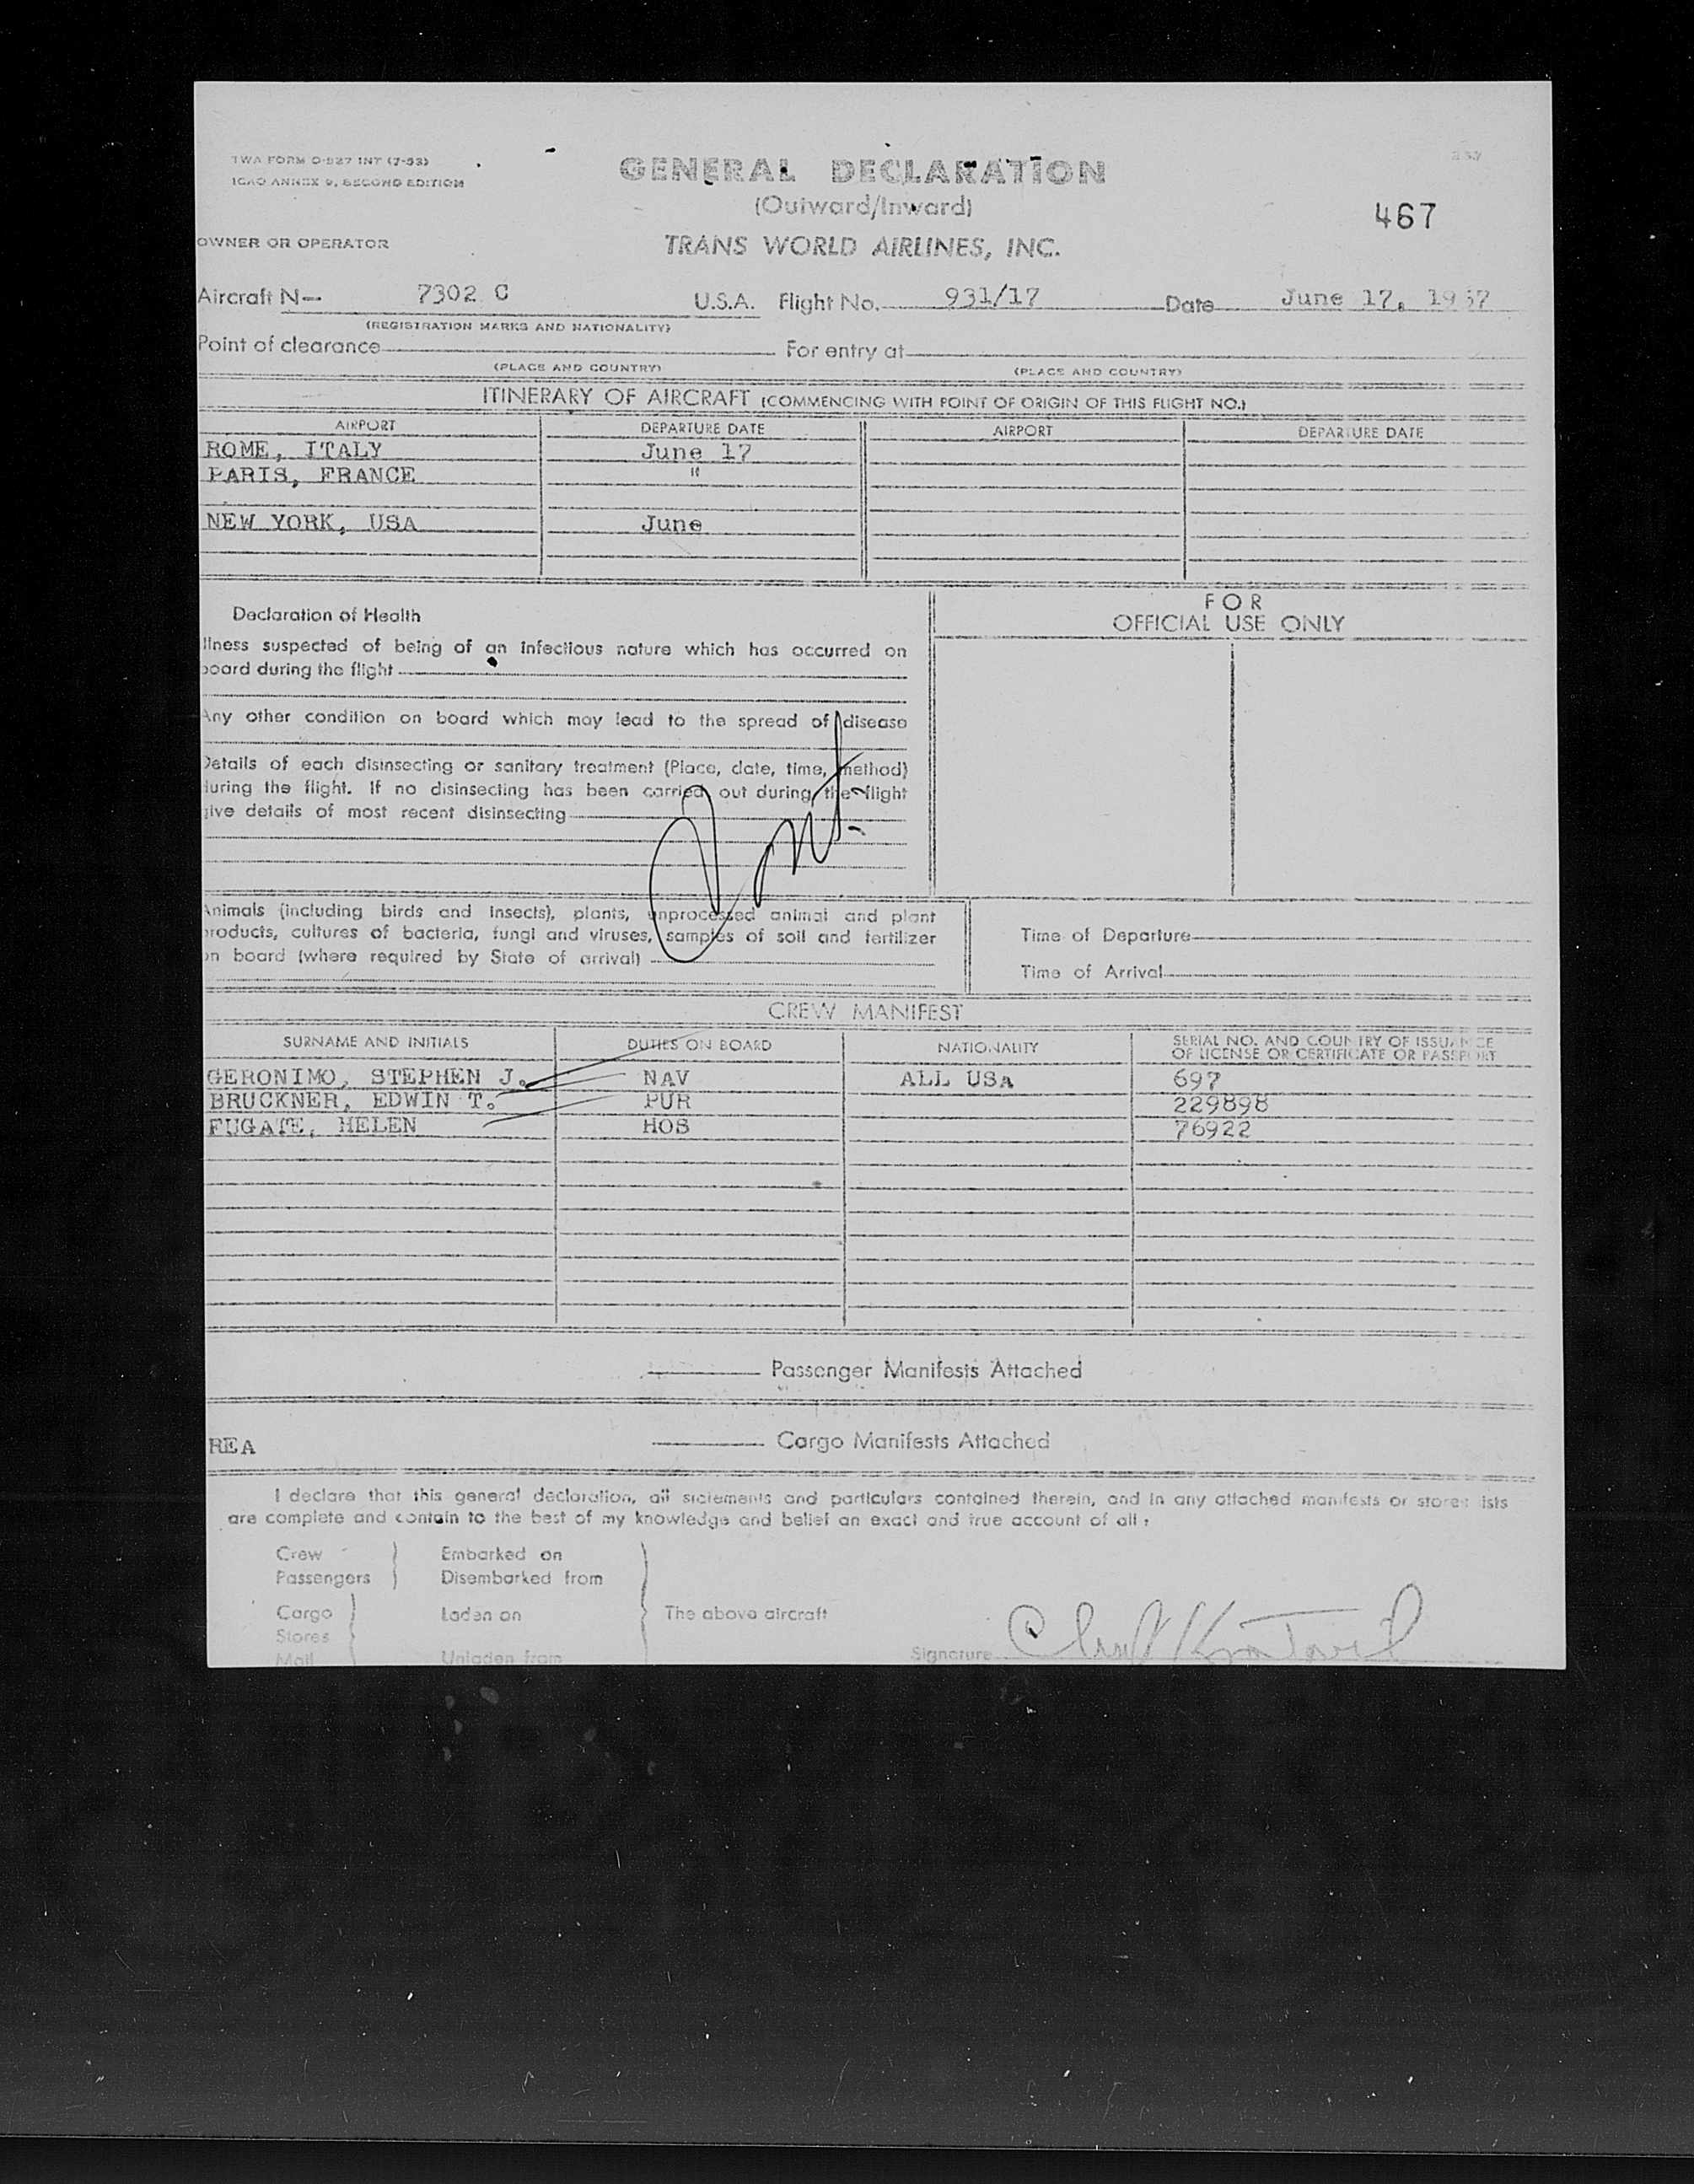 TWA FORM O-927 INT (7-53)
ICAO ANNEX 9, SECOND EDITION
GENERAL DECLARATION
(Outward/Inward)
467
OWNER OR OPERATOR
TRANS WORLD AIRLINES, INC.
Aircraft N- 7302 C U.S.A. Flight No. 931/17 Date June 17, 1957
(REGISTRATION MARKS AND NATIONALITY)
Point of clearance For entry at
(PLACE AND COUNTRY) (PLACE AND COUNTRY)
ITINERARY OF AIRCRAFT (COMMENCING WITH POINT OF ORIGIN OF THIS FLIGHT NO.)
AIRPORT DEPARTURE DATE AIRPORT DEPARTURE DATE
ROME, ITALY June 17
PARIS, FRANCE "
NEW YORK, USA June
Declaration of Health
llness suspected of being of an infectious nature which has occurred on
board during the flight
Any other condition on board which may lead to the spread of disease
Details of each disinsecting or sanitary treatment (Place, date, time, method)
during the flight. If no disinsecting has been carried out during the flight
give details of most recent disinsecting
FOR
OFFICIAL USE ONLY
Animals (including birds and insects), plants, unprocessed animal and plant
products, cultures of bacteria, fungi and viruses, samples of soil and fertilizer
on board (where required by State of arrival)
Time of Departure
Time of Arrival
CREW MANIFEST
SURNAME AND INITIALS DUTIES ON BOARD NATIONALITY SERIAL NO. AND COUNTRY OF ISSUANCE
OF LICENSE OR CERTIFICATE OR PASSPORT
GERONIMO, STEPHEN J. NAV ALL USA 697
BRUCKNER, EDWIN T. PUR 229898
FUGATE, HELEN HOS 76922
Passenger Manifests Attached
REA Cargo Manifests Attached
I declare that this general declaration, all statements and particulars contained therein, and in any attached manifests or stores lists
are complete and contain to the best of my knowledge and belief an exact and true account of all:
Crew Embarked on
Passengers Disembarked from
Cargo Laden on The above aircraft
Stores
Mail Unladen from Signature